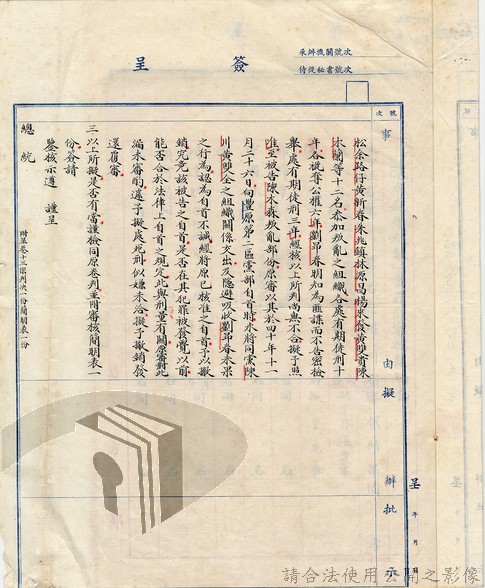 簽呈
承辦機關號次
侍從秘書號次
號次
事由
擬辦
批示
松余路仔黃新春朱兆鎮林源昌楊來發黃雙首陳
木蘭等十二名參加叛亂之組織合處有期徒刑十
年各褫奪公權六年劉昂春明知為匪諜而不告密檢
舉處有期徒刑三年經核以上所判尚無不合擬予照
准至被告陳木森叛亂部份原審以其於四十年十一
月二十六日向豐原第二區黨部自首時未將同黨陳
川黃雙全之組織關係交出及隱避吸收劉昂春未果
之行為認為自首不誠經將原已核准之自首予以撤
銷究竟該被告之自首是否在其犯罪被發覺以前
能否合於法律上自首之規定此與刑量有關原審對此
漏未審酌遽予擬處死刑似嫌未洽擬予撤銷發
還覆審
三以上所擬是否有當謹檢同原卷判並附審核簡明表一
份簽請
鑒核示遵 謹呈
總統
附呈卷十三宗判決一份簡明表一份
呈 年 月 日
請合法使用公開之影像